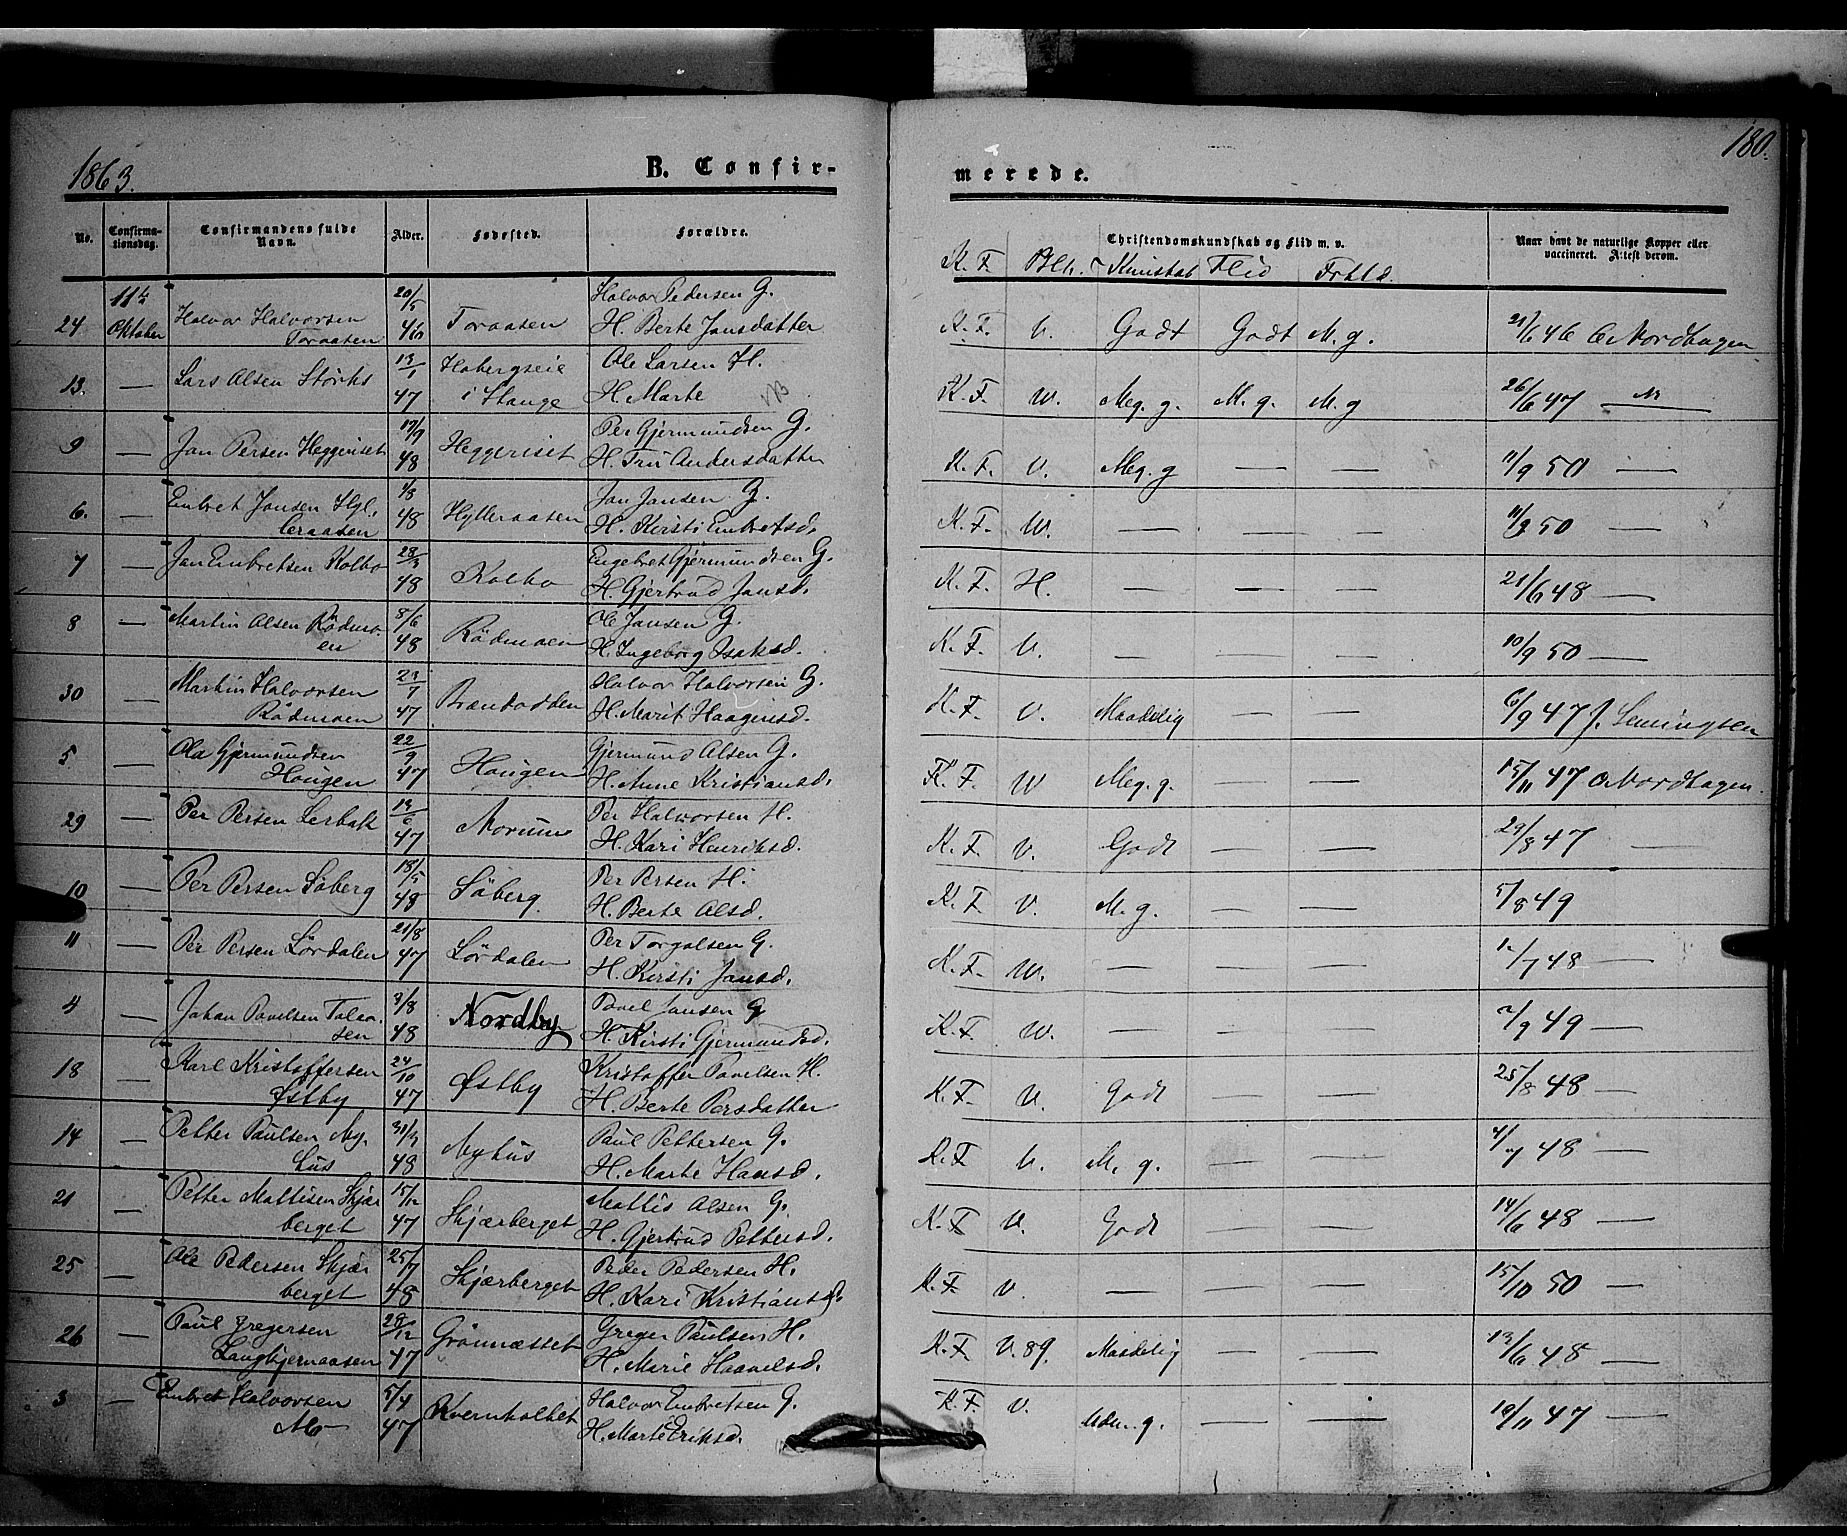 1863.
B. Confir-
merede.
180.
No.
Confirma-
tionsdag.
Confirmandens fulde
Navn.
Alder.
Fødested.
Forældre.
Christendomskundskab og Flid m. v.
K. F. Kundskab Flid
Naar havt de naturlige Kopper eller
vaccineret. Attest derom.
24 11te Oktober Halvor Halvorsen Toraasen 20/5 46 Toraasen Halvor Pedersen G. H. Berte Jansdatter K. F. V. Godt Godt M. g. 21/6 46 O Nordhagen
13. — Lars Olsen Störks 13/1 47 Hobergseie i Stange Ole Larsen H. H. Marte K. F. W. Meg. g. M. g. M. g 26/6 47 —
9 — Jon Persen Heggeriset 17/9 48 Heggeriset Per Gjermundsen G. H. Tru Andersdatter K. F. V. Meg. g — — 11/9 50 —
6. — Embret Jonsen Hylleraasen 1/8 48 Hylleraasen Jon Jonsen G. H. Kirsti Embretsd. K. F. W. — — — 11/9 50 —
7 — Jon Embretsen Kolbo 28/3 48 Kolbo Engebret Gjermundsen G. H. Gjertrud Jonsd. K. F. H. — — — 21/6 48 —
8 — Martin Olsen Rödmoen 8/6 48 Rödmoen Ole Jonsen G. H. Ingeborg Isaksd. K. F. V. — — — 10/9 50 —
30 — Martin Halvorsen Rödmoen 23/7 47 Brændodden Halvor Halvorsen G. H. Marit Haagensd. K. F. V. Maadelig — — 6/9 47 J. Lemingsen
5 — Ola Gjermundsen Hougen 22/9 47 Hougen Gjermund Olsen G. H. Anne Kristiansd. K. F. W Meg. g. — — 15/11 47 O Nordhagen.
29 — Per Persen Lerbak 13/6 47 Morum Per Halvorsen H. H. Kari Henriksd. K. F V. Godt — — 29/8 47 —
10 — Per Persen Söberg 18/5 48 Söberg. Per Persen H. H. Berte Olsd. K. F V. M. g. — — 5/8 49
11 — Per Persen Lördalen 21/8 47 Lördalen Per Torgalsen G. H. Kirsti Jonsd. K. F W. — — — 12/7 48 —
4 — Johan Povelsen 3/8 48 Nordby Povel Jonsen G H. Kirsti Gjermundsd. K. F W. — — — 2/9 49 —
18 — Karl Kristoffersen Østby 24/10 47 Østby Kristoffer Povelsen H. H. Berte Persdatter K. F V. Godt — — 25/8 48 —
14 — Petter Paulsen Myhus 31/3 48 Myhus Paul Pettersen G. H. Marte Hansd. K. F V. M. g. — — 4/7 48 —
21 — Petter Mattisen Skjærberget 15/12 47 Skjærberget Mattis Olsen G. H. Gjertrud Pettersd. K. F V. Godt — — 14/6 48 —
25 — Ole Pedersen Skjærberget 25/7 48 Skjærberget Peder Pedersen H. H. Kari Kristiansd. K. F V. — — — 15/10 50 —
26 — Paul Gregersen Langbjernaasen 28/12 47 Grönnæsset Greger Paulsen H. H. Marie Haavelsd. K. F V. 89. Maadelig — — 13/6 48 —
3 — Embret Halvorsen Mo 5/4 47 Kvernholbet Halvor Embretsen G. H. Marte Eriksd. K. F V. Udm. g. — — 19/11 47 —